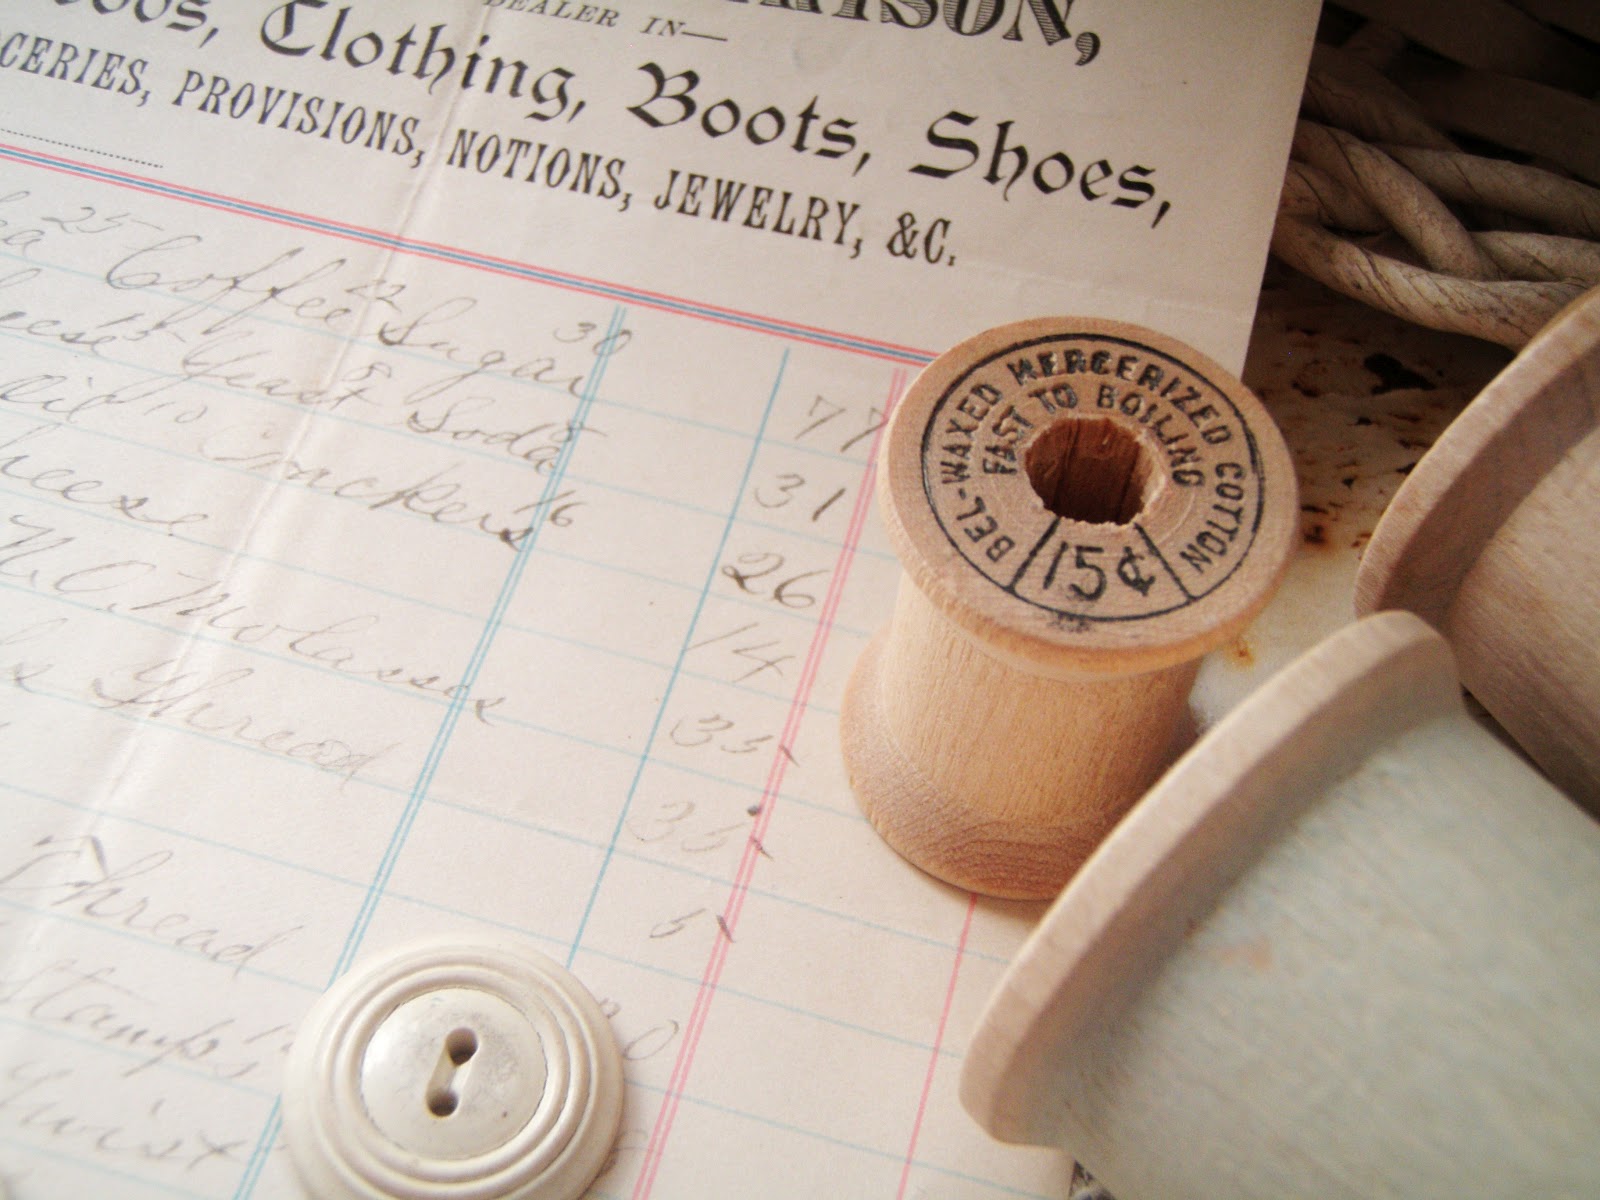 DEALER IN—
Clothing, Boots, Shoes,
PROVISIONS, NOTIONS, JEWELRY, &C.
25 Coffee 22 Sugar 30
77
15 Yeast 5 Soda
31
10 Crackers 16
26
14
N.O. Molasses
35
Thread
35
5
Thread
Stamps
Twist
BEL-WAXED MERCERIZED COTTON
FAST TO BOILING
15¢